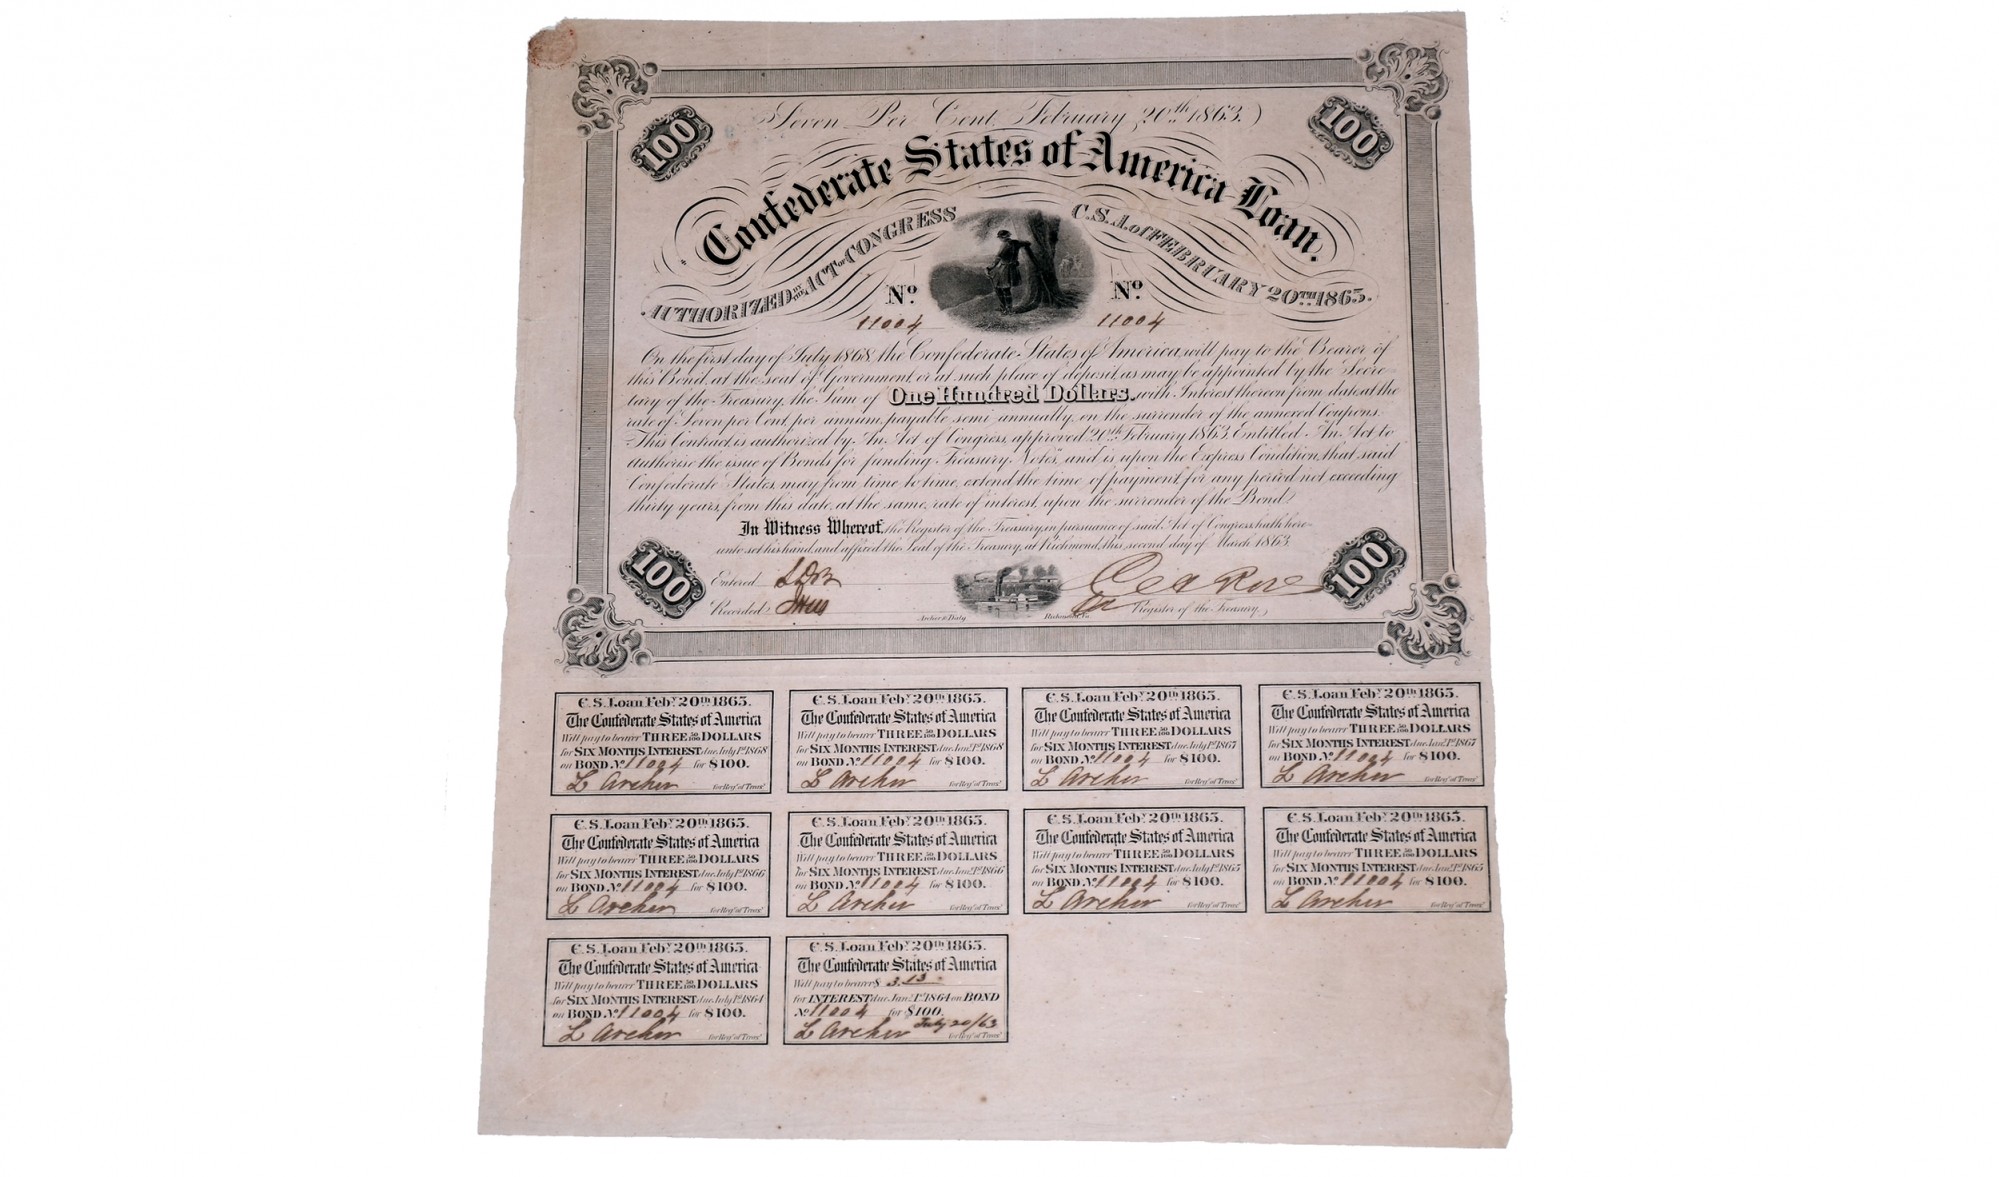 100
100
Seven Per Cent. February 20th 1863.
Confederate States of America Loan.
AUTHORIZED BY ACT OF CONGRESS C.S.A. of FEBRUARY 20TH 1863.
No. No.
11004 11004
On the first day of July 1868, the Confederate States of America, will pay to the Bearer of
this Bond, at the seat of Government, or at such place of deposit, as may be appointed by the Secre-
tary of the Treasury, the Sum of One Hundred Dollars, with Interest thereon from date, at the
rate of Seven per Cent. per annum, payable semi annually, on the surrender of the annexed Coupons.
This Contract, is authorized by An Act of Congress, approved 20th February 1863, Entitled An Act to
authorise the issue of Bonds for funding Treasury Notes", and is upon the Express Condition, that said
Confederate States, may from time to time, extend the time of payment, for any period not exceeding
thirty years, from this date, at the same, rate of interest, upon the surrender of the Bond
In Witness Whereof, the Register of the Treasury, in pursuance of said Act of Congress, hath here-
unto set his hand, and affixed the Seal of the Treasury, at Richmond, this second day of March 1863
100
100
Entered
Recorded
Register of the Treasury.
Archer & Daly Richmond, Va.
C.S. Loan Feby 20th 1863.
The Confederate States of America
Will pay to bearer THREE 50/100 DOLLARS
for SIX MONTHS INTEREST due July 1st 1868
on BOND No 11004 for $100.
L Archer for Regr of Treasy
C.S. Loan Feby 20th 1863.
The Confederate States of America
Will pay to bearer THREE 50/100 DOLLARS
for SIX MONTHS INTEREST due Jany 1st 1868
on BOND No 11004 for $100.
L Archer for Regr of Treasy
C.S. Loan Feby 20th 1863.
The Confederate States of America
Will pay to bearer THREE 50/100 DOLLARS
for SIX MONTHS INTEREST due July 1st 1867
on BOND No 11004 for $100.
L Archer for Regr of Treasy
C.S. Loan Feby 20th 1863.
The Confederate States of America
Will pay to bearer THREE 50/100 DOLLARS
for SIX MONTHS INTEREST due Jany 1st 1867
on BOND No 11004 for $100.
L Archer for Regr of Treasy
C.S. Loan Feby 20th 1863.
The Confederate States of America
Will pay to bearer THREE 50/100 DOLLARS
for SIX MONTHS INTEREST due July 1st 1866
on BOND No 11004 for $100.
L Archer for Regr of Treasy
C.S. Loan Feby 20th 1863.
The Confederate States of America
Will pay to bearer THREE 50/100 DOLLARS
for SIX MONTHS INTEREST due Jany 1st 1866
on BOND No 11004 for $100.
L Archer for Regr of Treasy
C.S. Loan Feby 20th 1863.
The Confederate States of America
Will pay to bearer THREE 50/100 DOLLARS
for SIX MONTHS INTEREST due July 1st 1865
on BOND No 11004 for $100.
L Archer for Regr of Treasy
C.S. Loan Feby 20th 1863.
The Confederate States of America
Will pay to bearer THREE 50/100 DOLLARS
for SIX MONTHS INTEREST due Jany 1st 1865
on BOND No 11004 for $100.
L Archer for Regr of Treasy
C.S. Loan Feby 20th 1863.
The Confederate States of America
Will pay to bearer THREE 50/100 DOLLARS
for SIX MONTHS INTEREST due July 1st 1864
on BOND No 11004 for $100.
L Archer for Regr of Treasy
C.S. Loan Feby 20th 1863.
The Confederate States of America
Will pay to bearer $ 3.13
for INTEREST due Jany 1st 1864 on BOND
No 11004 for $100.
L Archer July 20/63
for Regr of Treasy